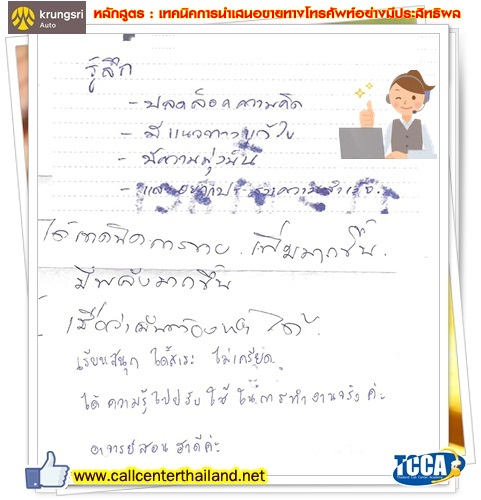 krungsri
Auto
หลักสูตร : เทคนิคการนำเสนอขายทางโทรศัพท์อย่างมีประสิทธิผล
รู้สึก
- ปลดล็อคความคิด
- มีแนวทางแก้ไข
- มีความมุ่งมั่น
- และอยากประสบความสำเร็จ
ได้เทคนิคการขาย เพิ่มมากขึ้น.
มีพลังมากขึ้น
เชื่อว่าฉันต้องทำได้
เรียนสนุก ได้สาระ ไม่เครียด
ได้ความรู้ไปปรับใช้ในการทำงานจริงค่ะ
อาจารย์สอนดีค่ะ
www.callcenterthailand.net
TCCA